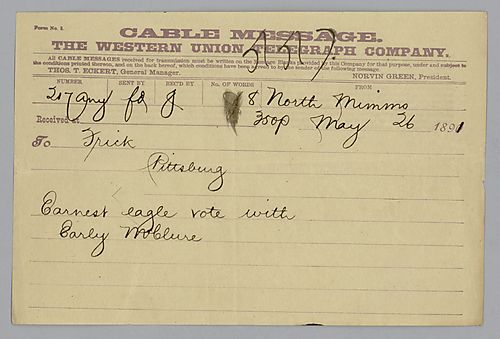 Form No. 1.
CABLE MESSAGE.
THE WESTERN UNION TELEGRAPH COMPANY.
All CABLE MESSAGES received for transmission must be written on the Message Blanks provided by this Company for that purpose, under and subject to
the conditions printed thereon, and on the back hereof, which conditions have been agreed to by the sender of the following message.
THOS. T. ECKERT, General Manager. NORVIN GREEN, President.
NUMBER SENT BY REC'D BY No. OF WORDS FROM
8 North Mimms
Received at 350p May 26 1891
To Frick
Pittsburg
Earnest eagle vote with
Early McClure